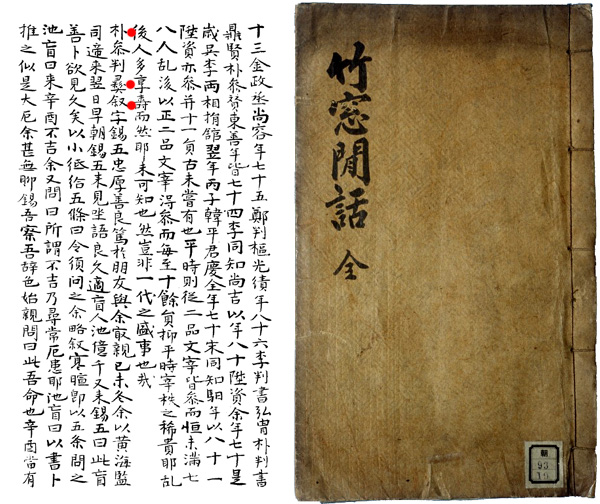 十三金政丞尙容年七十五鄭判樞光績年八十六李判書弘冑朴判書
鼎賢朴參贊東善年皆七十四李同知尙吉以年八十陞資余年七十是
歲吳李兩相捐舘翌年丙子韓平君慶全年七十宋同知馹年以八十一
陞資亦參并十一員古未嘗有也平時則從二品文宰皆參而恒未滿七
八人亂後以正二品文宰得參而每至十餘員抑平時宰秩之稀貴耶亂
後人多享壽而然耶未可知也然豈非一代之盛事也哉
朴參判彛叙字錫五忠厚善良篤於朋友與余㝡親己未冬余以黃海監
司適來翌日早朝錫五來見坐語良久適盲人池億千又來錫五曰此盲
善卜欲見久矣以小紙給五條曰令須問之余略叙寒暄卽以五條問之
池盲曰來辛酉不吉余又問曰所謂不吉乃尋常厄患耶池盲曰以書卜
推之似是大厄余甚無聊錫吾察吾辭色始親問曰此吾命也辛酉當有
竹窓閒話 全
朝
93